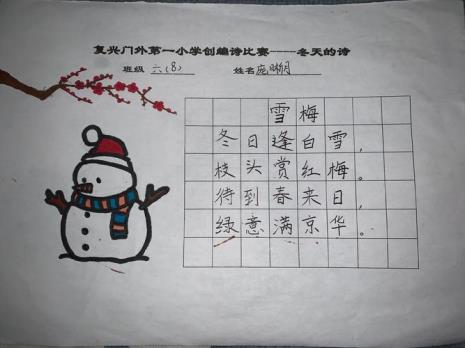 复兴门外第一小学创编诗比赛-----冬天的诗
班级 六(8) 姓名
雪梅
冬日逢白雪，
枝头赏红梅。
待到春来日，
绿意满京华。